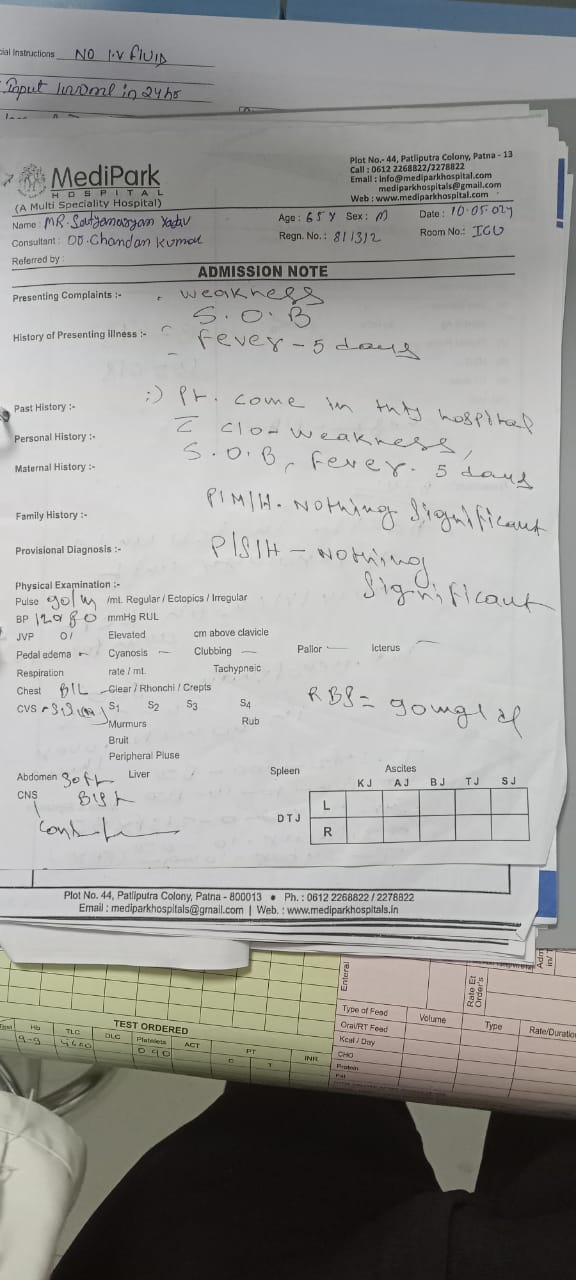 cial Instructions NO I.V fluid
Input 1000ml in 24hs
MediPark
HOSPITAL
(A Multi Speciality Hospital)
Plot No.- 44, Patliputra Colony, Patna - 13
Call : 0612 2268822/2278822
Email : Info@mediparkhospital.com
mediparkhospitals@gmail.com
Web : www.mediparkhospital.com
Name : MR. Satyanarayan Yadav Age : 65 Y Sex : M Date : 10.05.024
Consultant : DR. Chandan Kumar Regn. No.: 811312 Room No.: ICU
Referred by :
ADMISSION NOTE
Presenting Complaints :- weakness
S.O.B
History of Presenting illness :- Fever - 5 days
Past History :- Pt. come in this hospital
Personal History :- c C/o - weakness,
Maternal History :- S.O.B, Fever. 5 days
Family History :- P/M/H. Nothing Significant
Provisional Diagnosis :- P/S/H - Nothing
Significant
Physical Examination :-
Pulse 90/m /mt. Regular / Ectopics / Irregular
BP 120/80 mmHg RUL
JVP Elevated cm above clavicle
Pedal edema - Cyanosis - Clubbing - Pallor - Icterus -
Respiration rate / mt. Tachypneic
Chest B/L Clear / Rhonchi / Crepts
CVS S1 S2 S3 S4
RBS = 90mg/dl
Murmurs Rub
Bruit
Peripheral Pluse
Abdomen Soft Liver Spleen Ascites
CNS
KJ AJ BJ TJ SJ
DTJ L
R
Plot No. 44, Patliputra Colony, Patna - 800013 • Ph. : 0612 2268822 / 2278822
Email : mediparkhospitals@gmail.com | Web. : www.mediparkhospitals.in
Enteral
Rate Et
Order's
Type of Feed Volume Type Rate/Duration
Oral/RT Feed
Kcal / Day
CHO
Protein
Fat
TEST ORDERED
Hb TLC DLC Platelets ACT PT INR
9.9 4600 090 C T